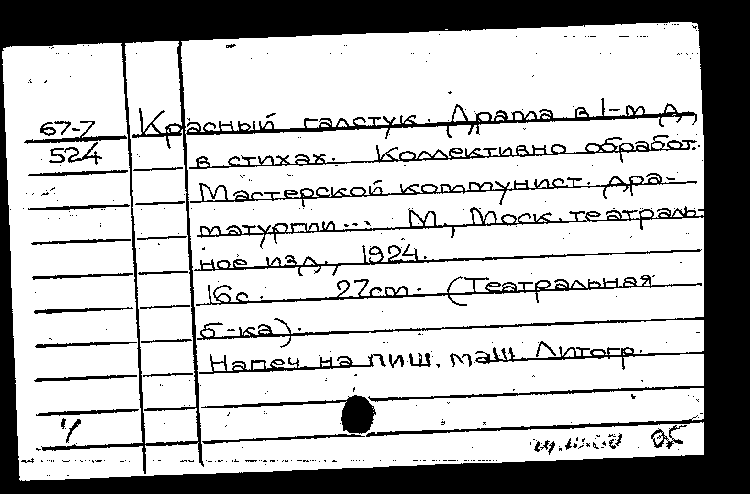 67-7 Красный галстук. Драма в 1-м д.,
524 в стихах. Коллективно обработ.
Мастерской коммунист. дра-
матургии... М., Моск. театраль-
ное изд., 1924.
16с. 27см. (Театральная
б-ка).
Напеч. на пиш. маш. Литогр.